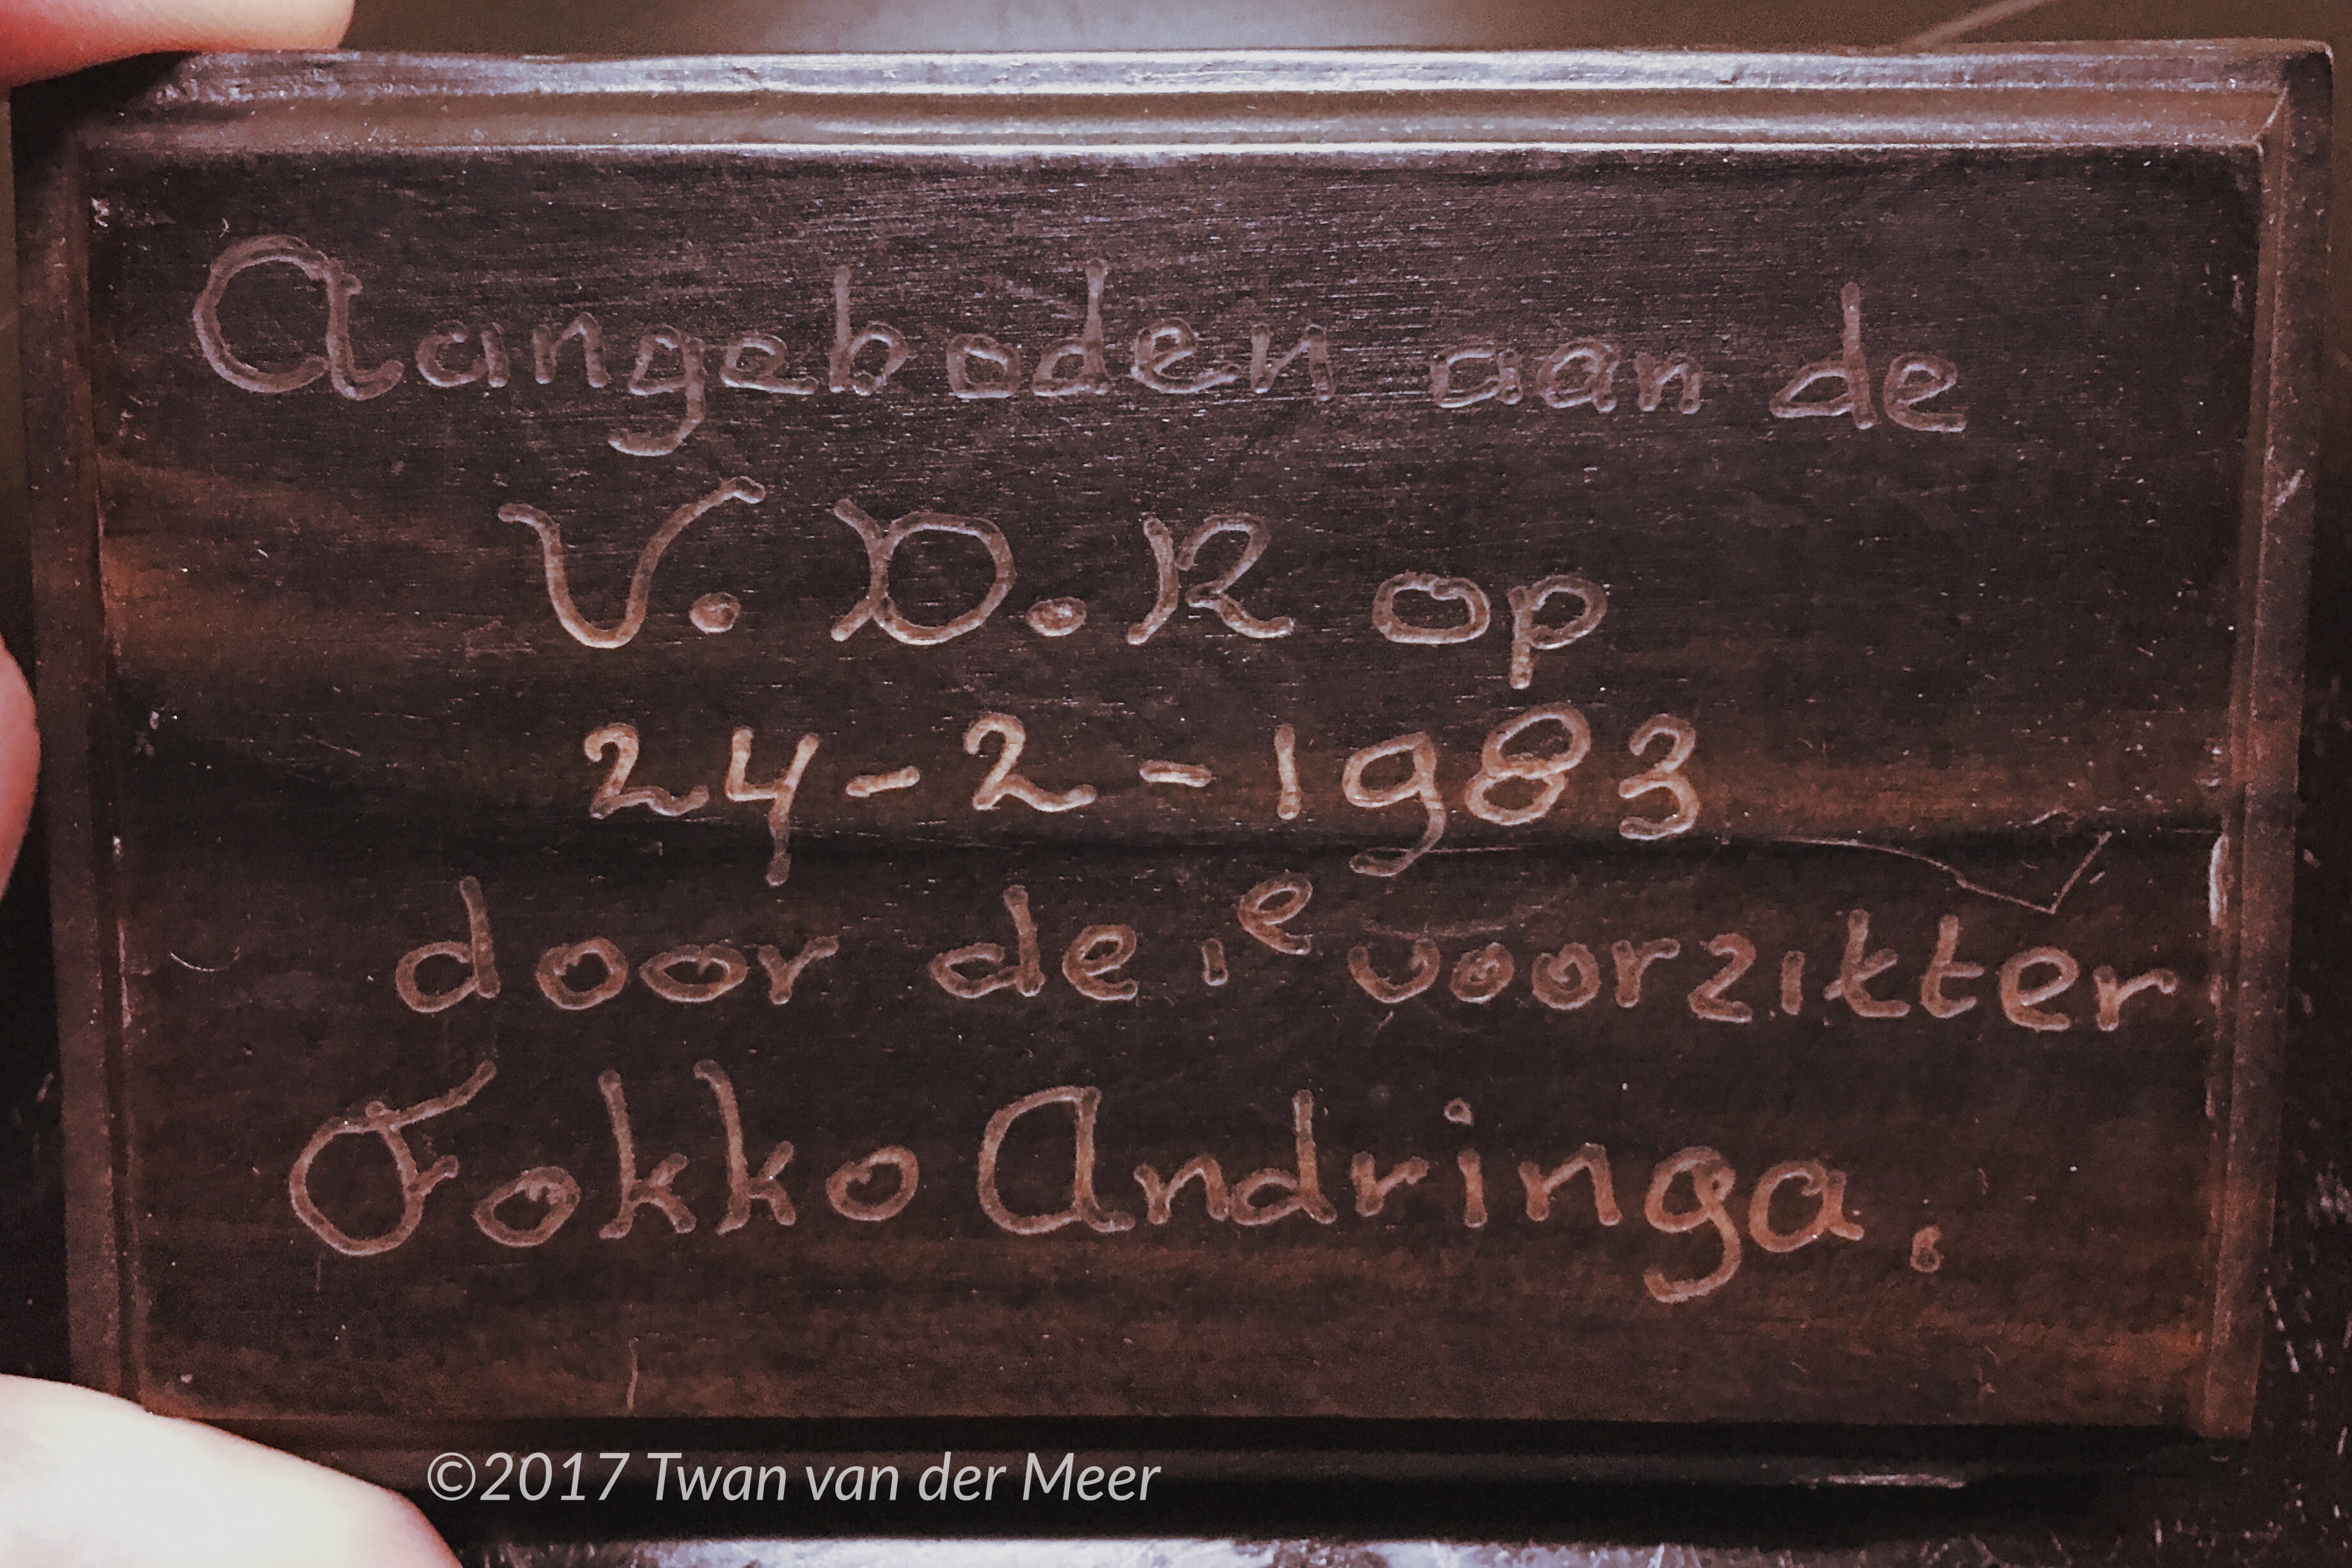 Aangeboden aan de
V.D.R op
24-2-1983
door de 1e voorzitter
Fokko Andringa.
©2017 Twan van der Meer